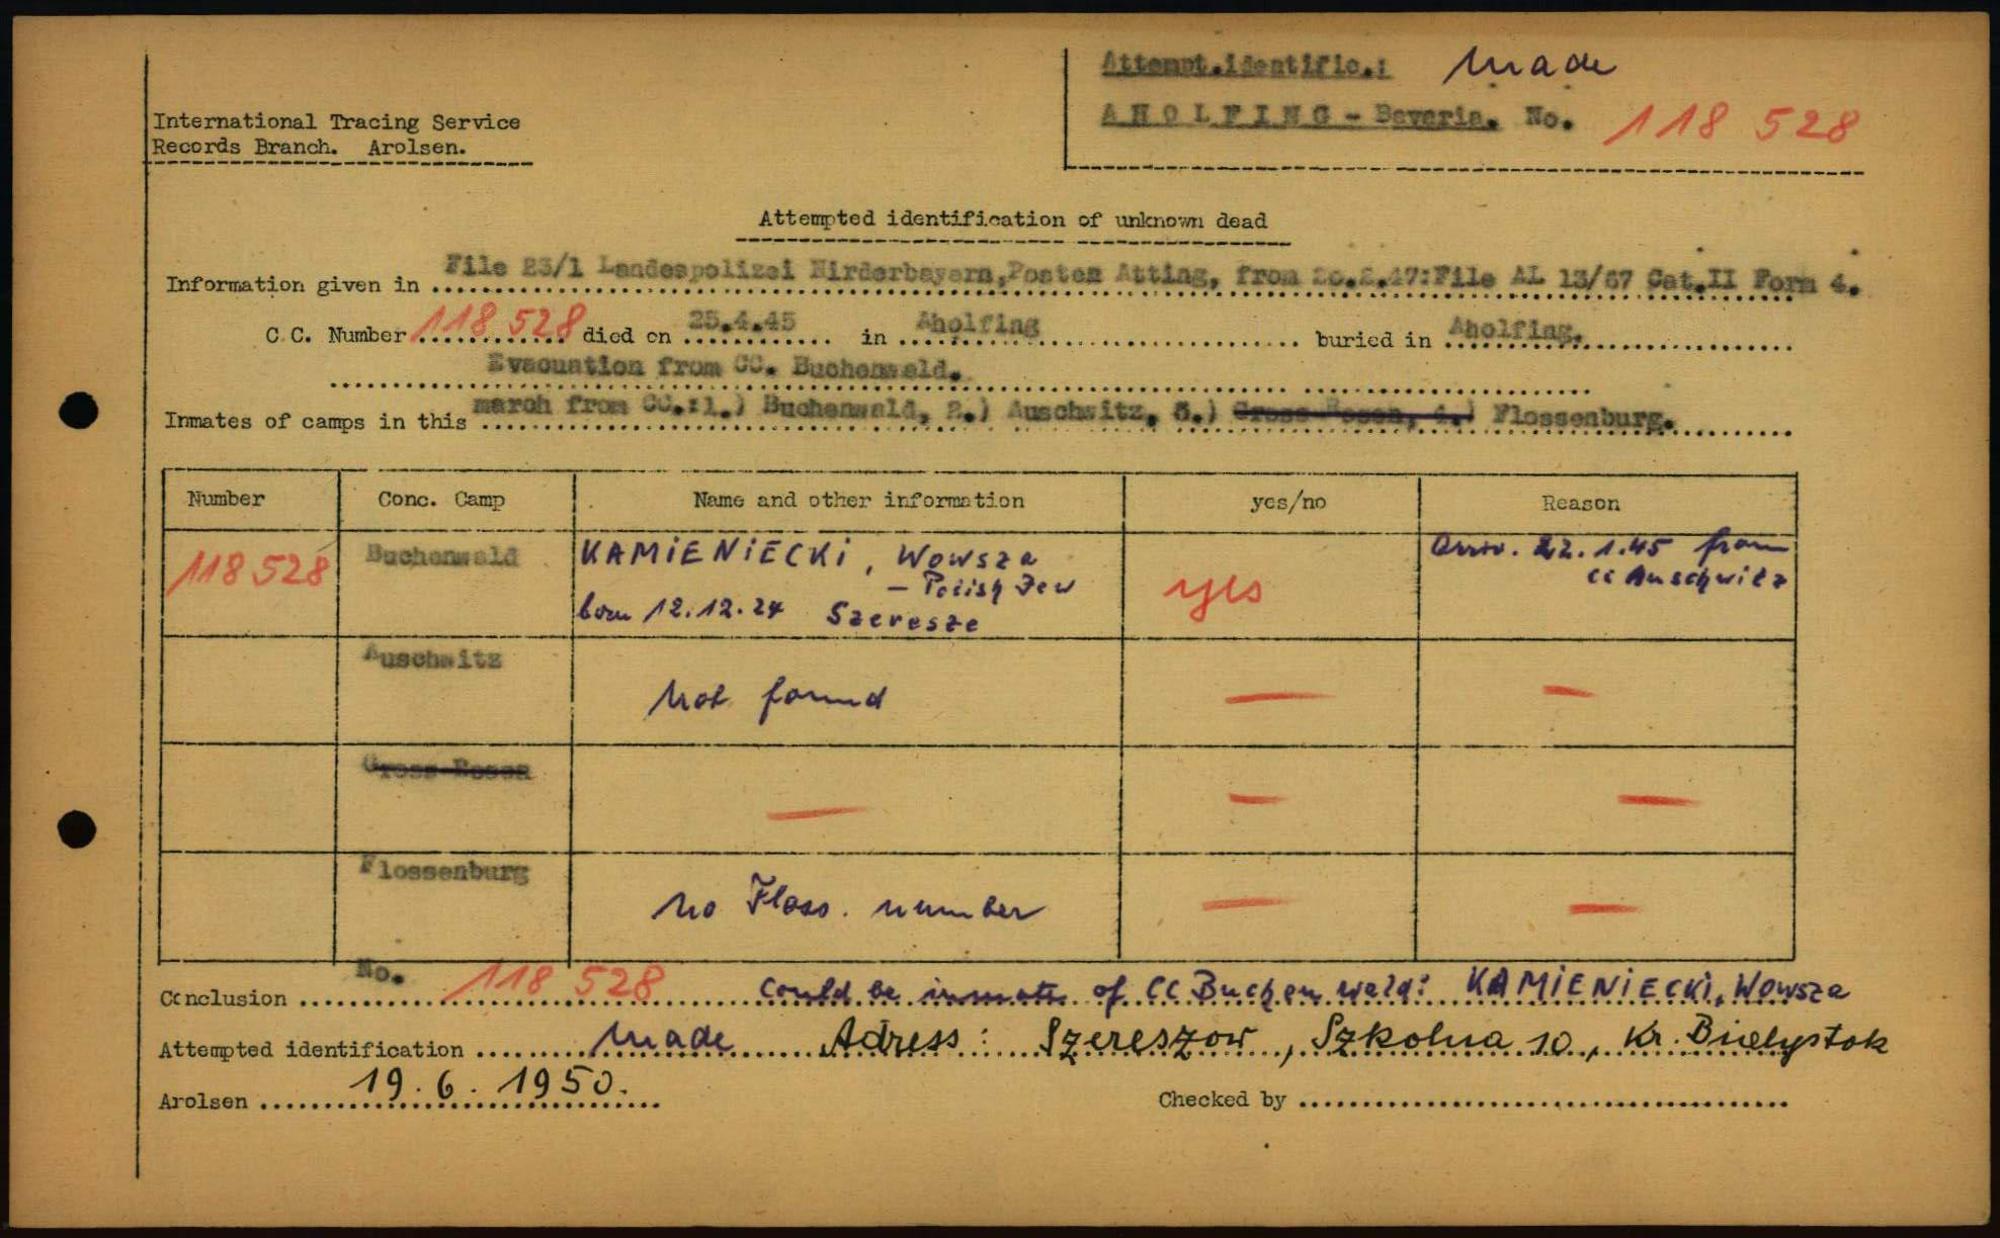 Attempt.identific.: Made
AHOLFING - Bavaria. No. 118 528
International Tracing Service
Records Branch. Arolsen.
Attempted identification of unknown dead
Information given in File 23/1 Landespolizei Nirderbayern, Posten Atting, from 20.2.47: File AL 13/67 Cat.II Form 4.
C.C. Number 118 528 died on 25.4.45 in Aholfing buried in Aholfing.
Evacuation from CC. Buchenwald.
Inmates of camps in this march from CC.:1.) Buchenwald, 2.) Auschwitz, 3.) Gross Rosen, 4.) Flossenburg.
Number Conc. Camp Name and other information yes/no Reason
118 528 Buchenwald KAMIENIECKI, Wowsza yes Arriv. 22.1.45 from
- Polish Jew cc Auschwitz
born 12.12.24 Szeresze
Auschwitz Not found — —
Gross Rosen — — —
Flossenburg No Floss. number — —
Conclusion No. 118 528 could be inmate of CC Buchenwald: KAMIENIECKI, Wowsza
Attempted identification Made Adress: Szereszow, Szkolna 10, Kr. Bielystok
Arolsen 19. 6. 1950. Checked by